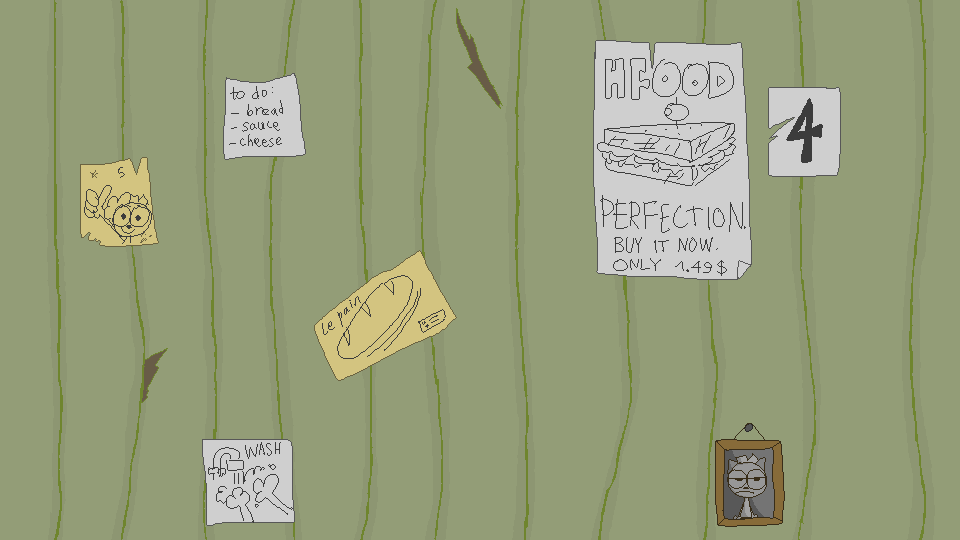 to do:
- bread
- sauce
- cheese
5
le pain
WASH
HFOOD
PERFECTION.
BUY IT NOW.
ONLY 1.49$
4